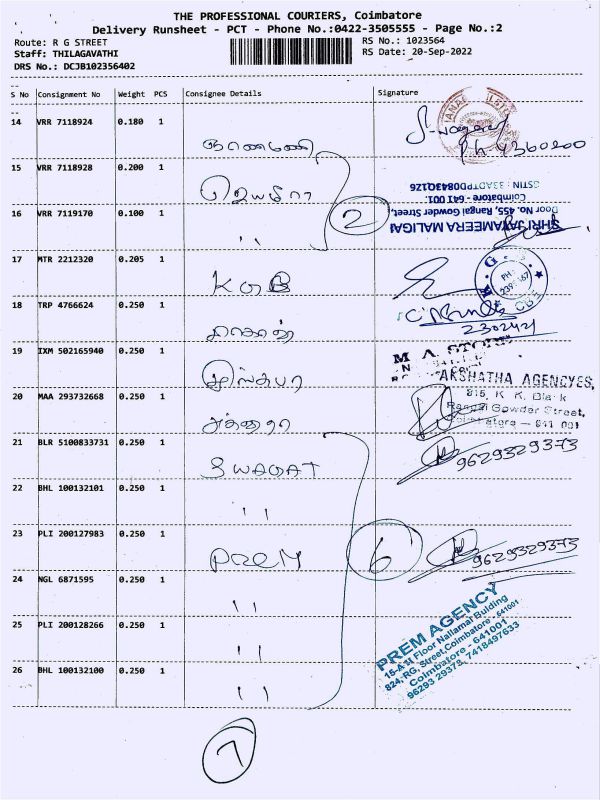 THE PROFESSIONAL COURIERS, Coimbatore
Delivery Runsheet - PCT - Phone No.:0422-3505555 - Page No.:2
Route: R G STREET
RS No.: 1023564
Staff: THILAGAVATHI
RS Date: 20-Sep-2022
DRS No.: DCJB102356402
S No Consignment No Weight PCS Consignee Details Signature
14 VRR 7118924 0.180 1
15 VRR 7118928 0.200 1
16 VRR 7119170 0.100 1 ''
2
GSTIN : 33ADTPD0843Q1Z6
Coimbatore - 641 001.
Door No. 455, Rangai Gowder Street,
SHRI JAYAMEERA MALIGAI
17 MTR 2212320 0.205 1 KGB
18 TRP 4766624 0.250 1
2302421
19 IXM 502165940 0.250 1
M A STORE
AKSHATHA AGENCYES,
20 MAA 293732668 0.250 1
815, K. K. Block
Rangai Gowder Street,
Coimbatore - 641 001
21 BLR 5100833731 0.250 1 SWAGAT
9629329373
22 BHL 100132101 0.250 1 ''
23 PLI 200127983 0.250 1 PREM
6
9629329373
24 NGL 6871595 0.250 1 ''
25 PLI 200128266 0.250 1 ''
26 BHL 100132100 0.250 1 ''
PREM AGENCY
15-A II Floor Nallamai Building
824, RG, Street, Coimbatore - 641001
Coimbatore - 641001
96293 29373, 7418497633
7